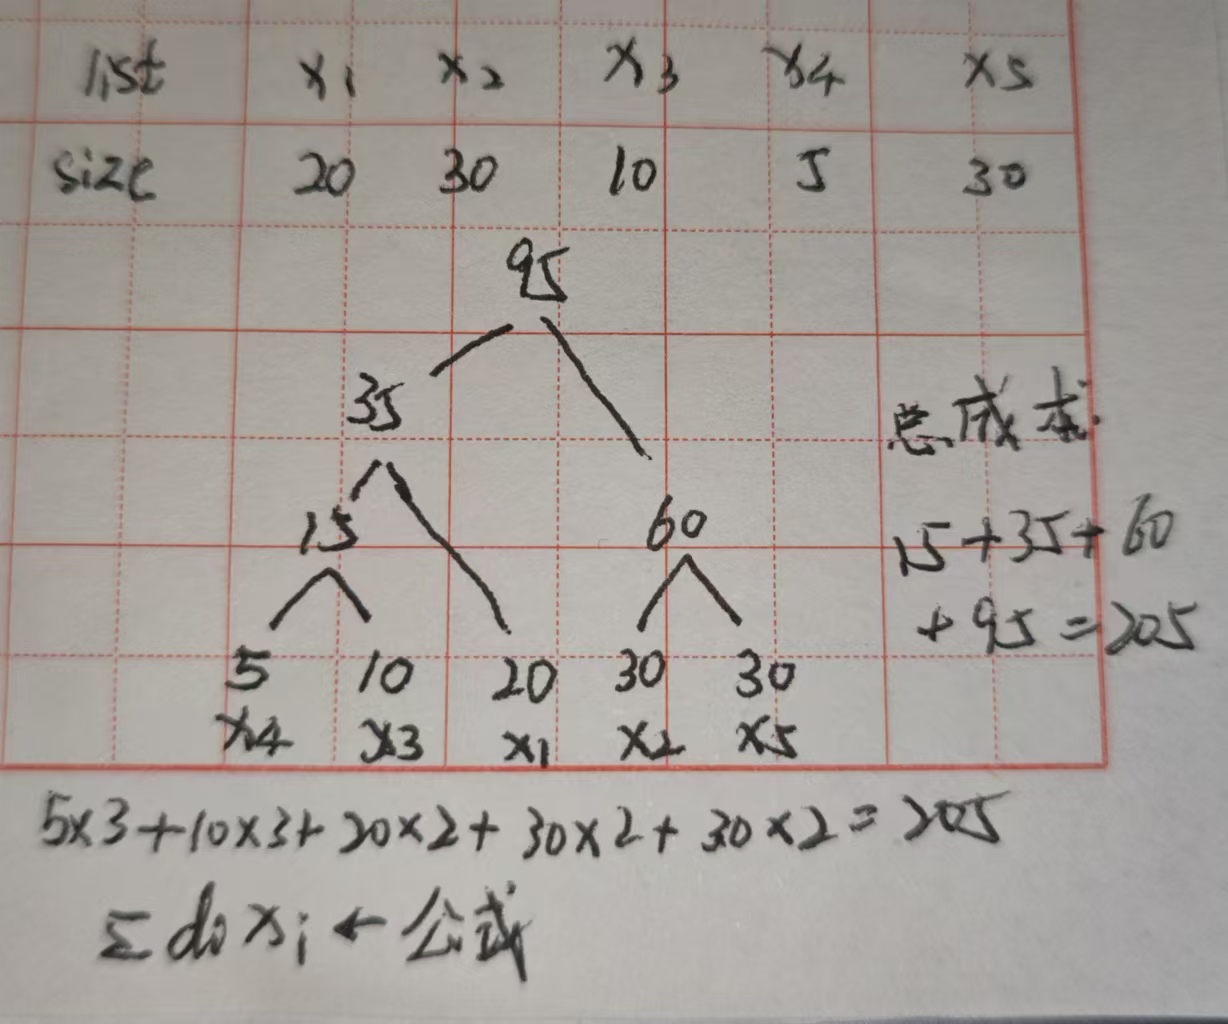 list x1 x2 x3 x4 x5
size 20 30 10 5 30
95
35
总成本
15 60
15+35+60
+95=205
5 10 20 30 30
x4 x3 x1 x2 x5
5×3+10×3+20×2+30×2+30×2=205
Σdi xi ← 公式